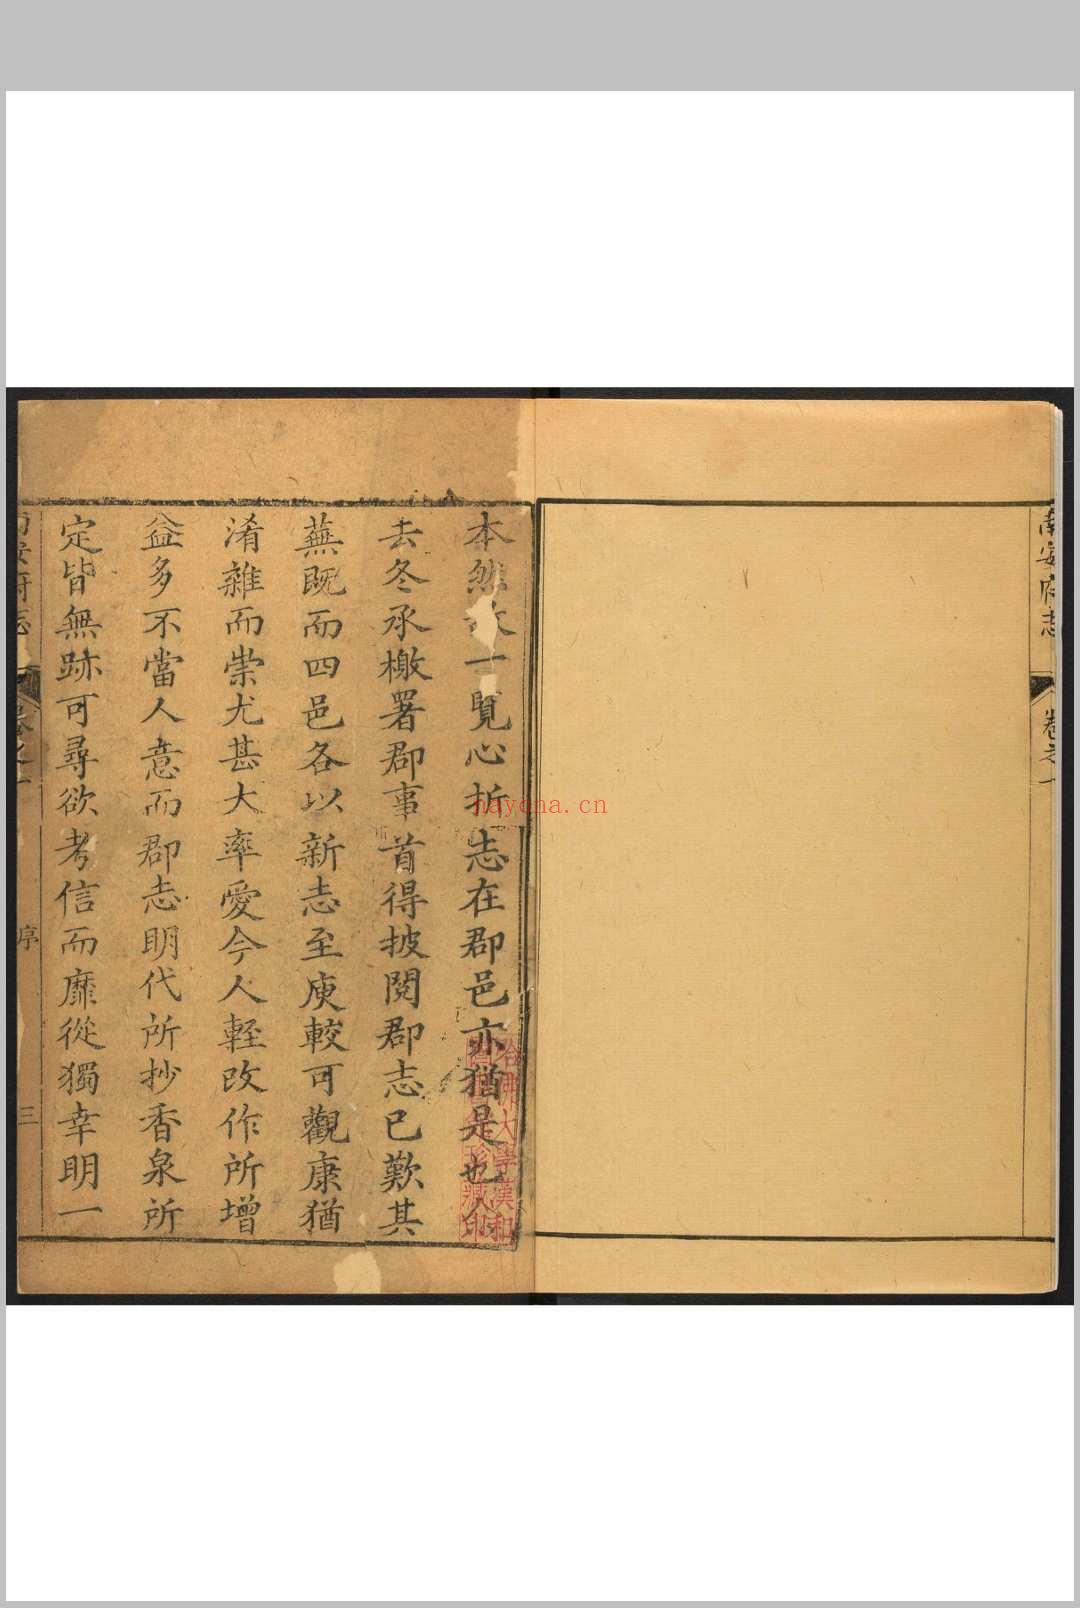 南安府志
卷之一
本然故一覽心折志在郡邑亦猶是也余
去冬承檄署郡事首得披閱郡志已歎其
蕪既而四邑各以新志至庾較可觀康猶
淆雜而崇尤甚大率愛今人輕改作所增
益多不當人意而郡志明代所抄香泉所
定皆無跡可尋欲考信而靡從獨幸明一
南安府志
卷之一
序
三
哈佛大學漢和
圖書館珍藏印
nayona.cn